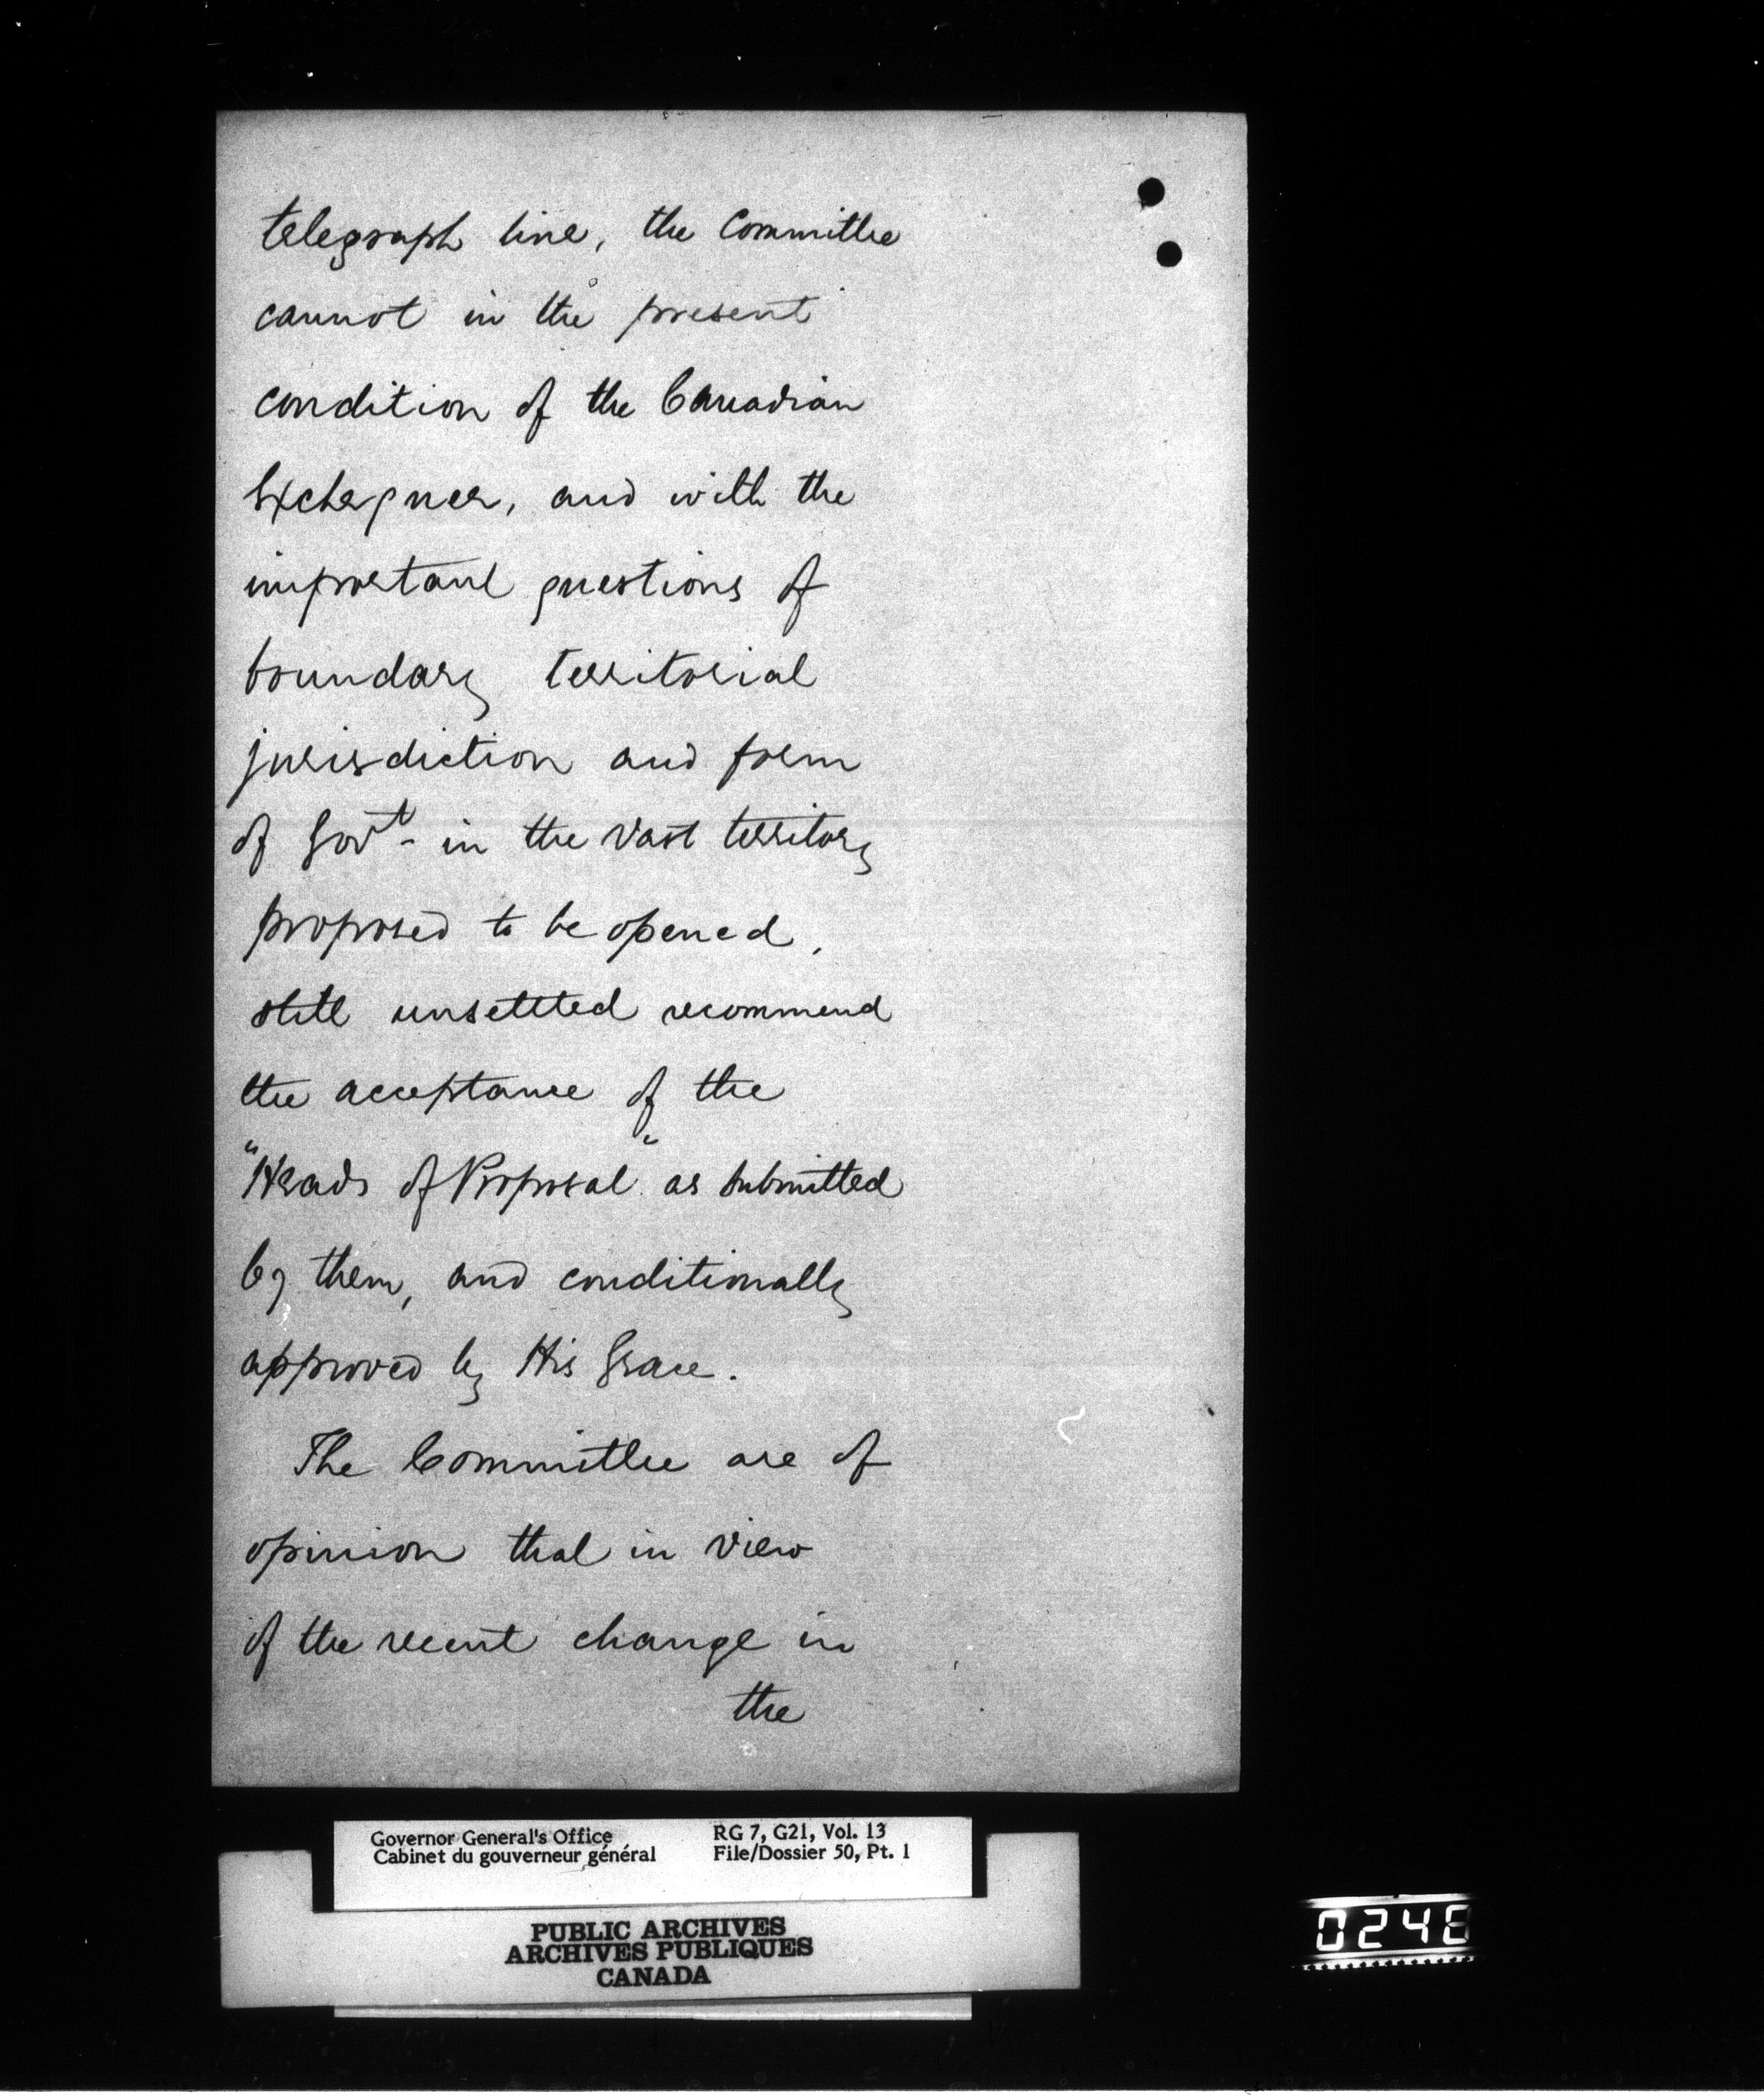 telegraph line, the Committee
cannot in the present
condition of the Canadian
Exchequer, and with the
important questions of
boundary territorial
jurisdiction and form
of Govt- in the vast territory
proposed to be opened,
still unsettled recommend
the acceptance of the
"Heads of Proposal" as submitted
by them, and conditionally
approved by His Grace.
The Committee are of
opinion that in view
of the recent change in
the
Governor General's Office
Cabinet du gouverneur général
RG 7, G21, Vol. 13
File/Dossier 50, Pt. 1
PUBLIC ARCHIVES
ARCHIVES PUBLIQUES
CANADA